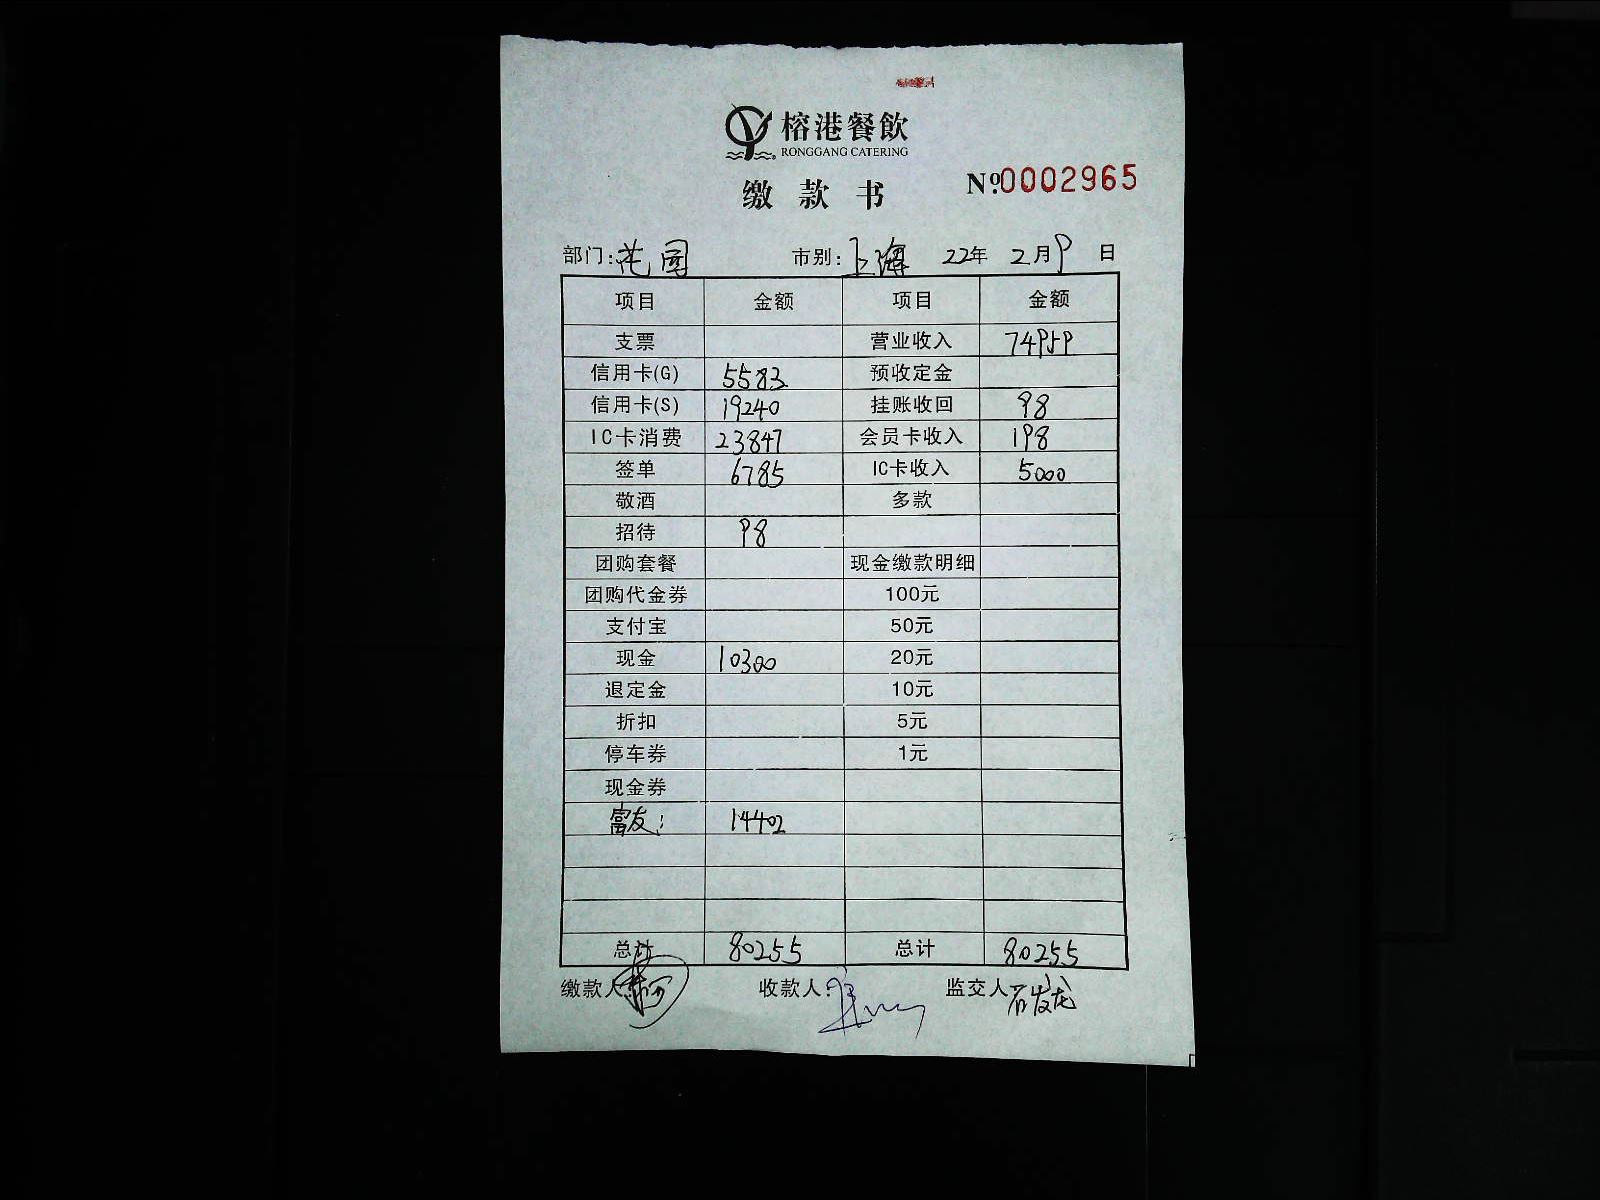 榕港餐飲
RONGGANG CATERING
缴款书 №0002965
部门:花园 市别:上海 22年 2月9日
项目 金额 项目 金额
支票 营业收入 74959
信用卡(G) 5583 预收定金
信用卡(S) 19240 挂账收回 98
IC卡消费 23847 会员卡收入 198
签单 6785 IC卡收入 5000
敬酒 多款
招待 98
团购套餐 现金缴款明细
团购代金券 100元
支付宝 50元
现金 10300 20元
退定金 10元
折扣 5元
停车券 1元
现金券
富友: 14402
总计 80255 总计 80255
缴款人: 收款人: 监交人 石发龙